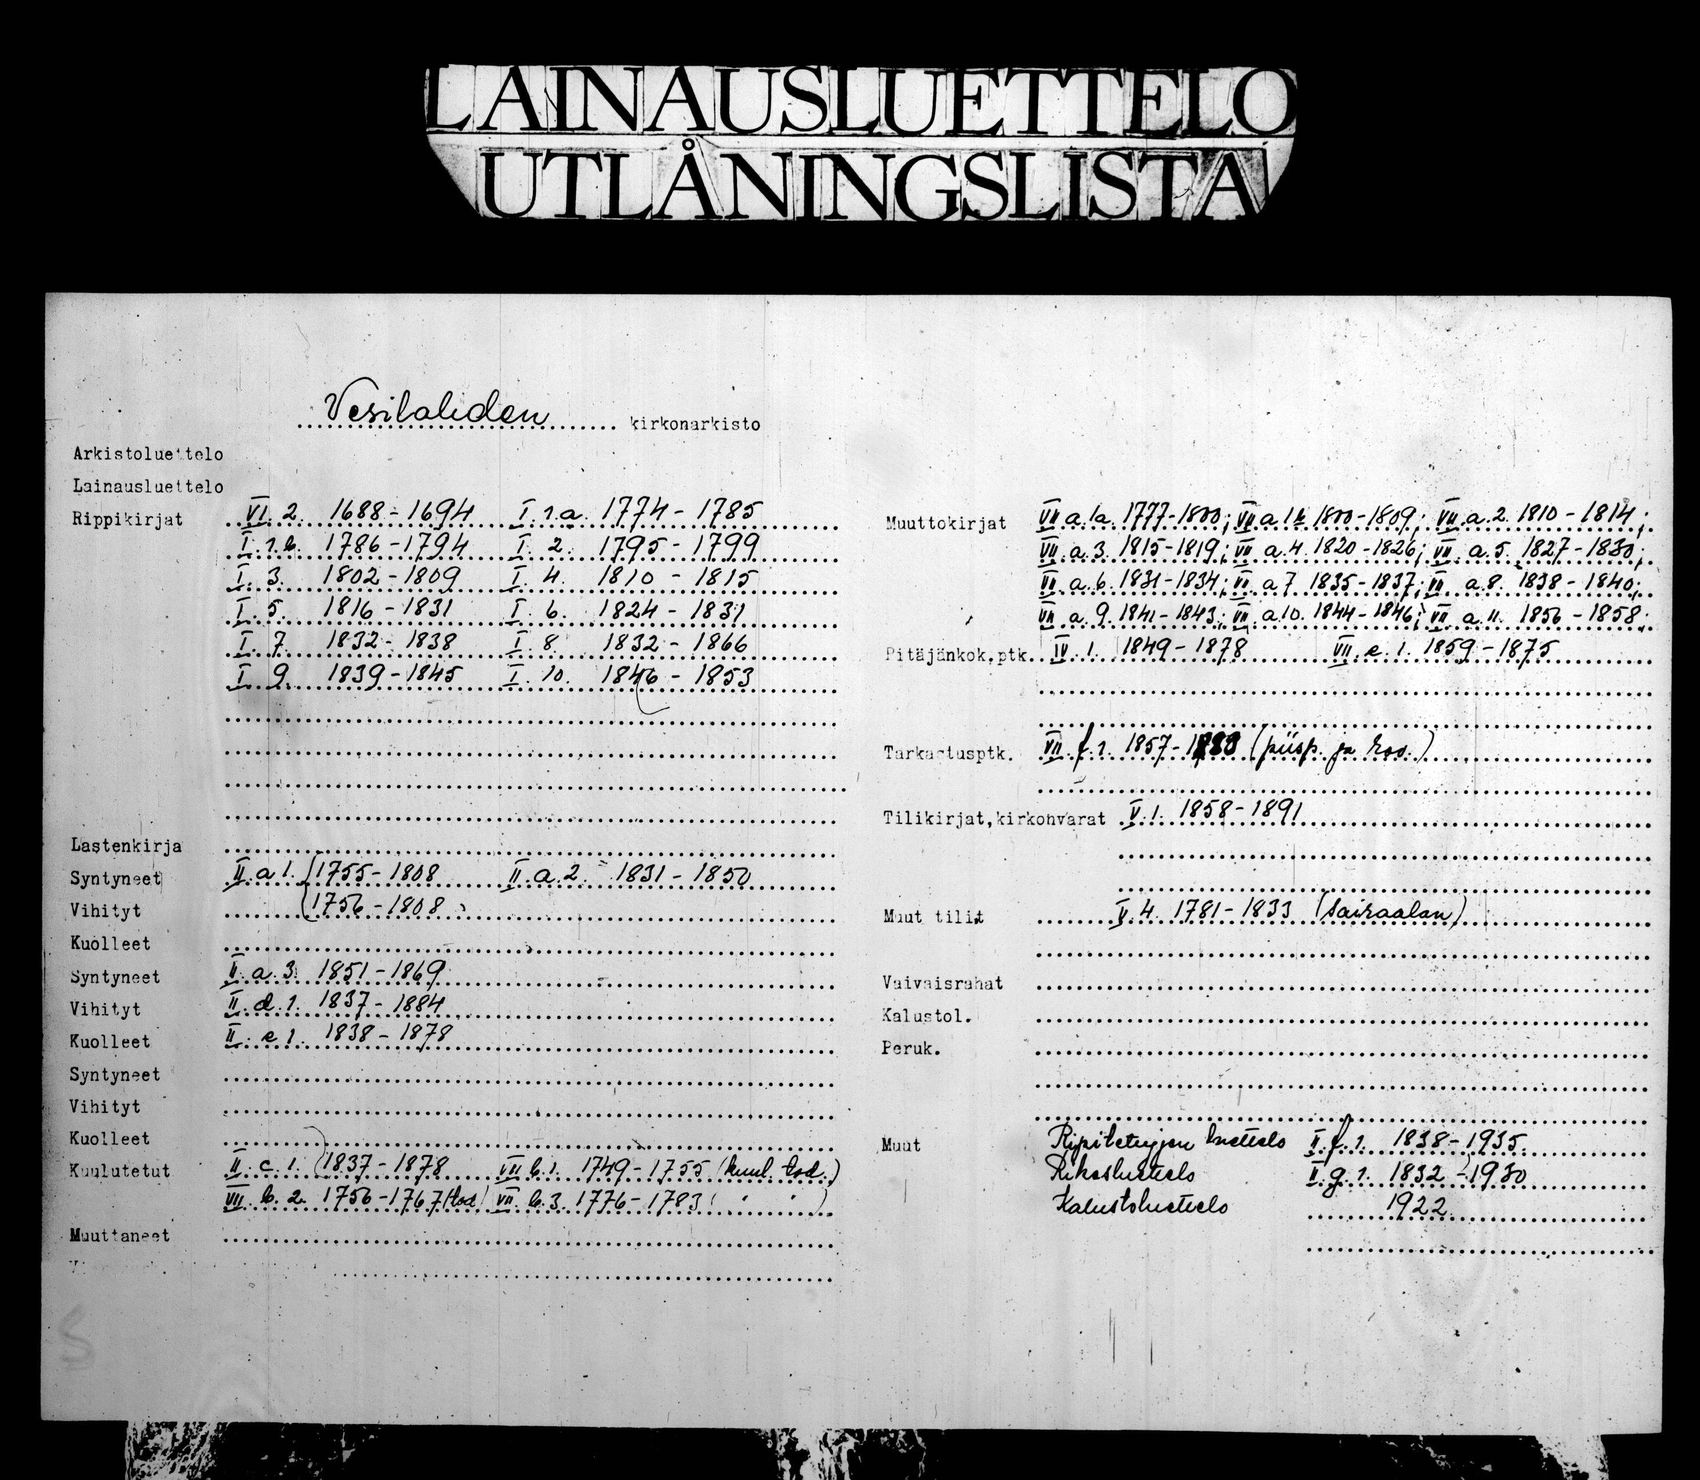 LAINAUSLUETTELO
UTLÅNINGSLISTA
Vesilahden kirkonarkisto
Arkistoluettelo
Lainausluettelo
Rippikirjat VI. 2. 1688-1694 I. 1.a. 1774-1785
I. 1.b. 1786-1794 I. 2. 1795-1799
I. 3. 1802-1809 I. 4. 1810-1815
I. 5. 1816-1831 I. 6. 1824-1831
I. 7. 1832-1838 I. 8. 1832-1866
I. 9. 1839-1845 I. 10. 1846-1853
Lastenkirja
Syntyneet II. a 1. (1755-1808 II. a. 2. 1831-1850
Vihityt (1756-1808
Kuolleet
Syntyneet II. a. 3. 1851-1869
Vihityt II. d. 1. 1837-1884
Kuolleet II. e 1. 1838-1878
Syntyneet
Vihityt
Kuolleet
Kuulutetut II. c. 1. 1837-1878 VII b. 1. 1749-1755 (kuul. tod.)
VII. b. 2. 1756-1767 (tod.) VII. b. 3. 1776-1783 ( " " )
Muuttaneet
Muuttokirjat VII a. 1a. 1777-1800; VII a 1b 1800-1809; VII. a. 2. 1810-1814;
VII. a. 3. 1815-1819; VII a. 4. 1820-1826; VII. a. 5. 1827-1830;
VII a. 6. 1831-1834; VII a 7 1835-1837; VII a. 8. 1838-1840;
VII a. 9. 1841-1843; VII a. 10. 1844-1846; VII a. 11. 1856-1858;
Pitäjänkok.ptk. IV. 1. 1849-1878 VII. e. 1. 1859-1875
Tarkastusptk. VII. f. 1. 1857-1883 (piisp. ja rov.)
Tilikirjat,kirkonvarat V. 1. 1858-1891
Muut tilit V. 4. 1781-1833 (Sairaalan)
Vaivaisrahat
Kalustol.
Peruk.
Muut Ripiletuyjen luettelo II. f. 1. 1838-1935
Rikosluettelo II. g. 1. 1832-1930
Kalustoluettelo 1922